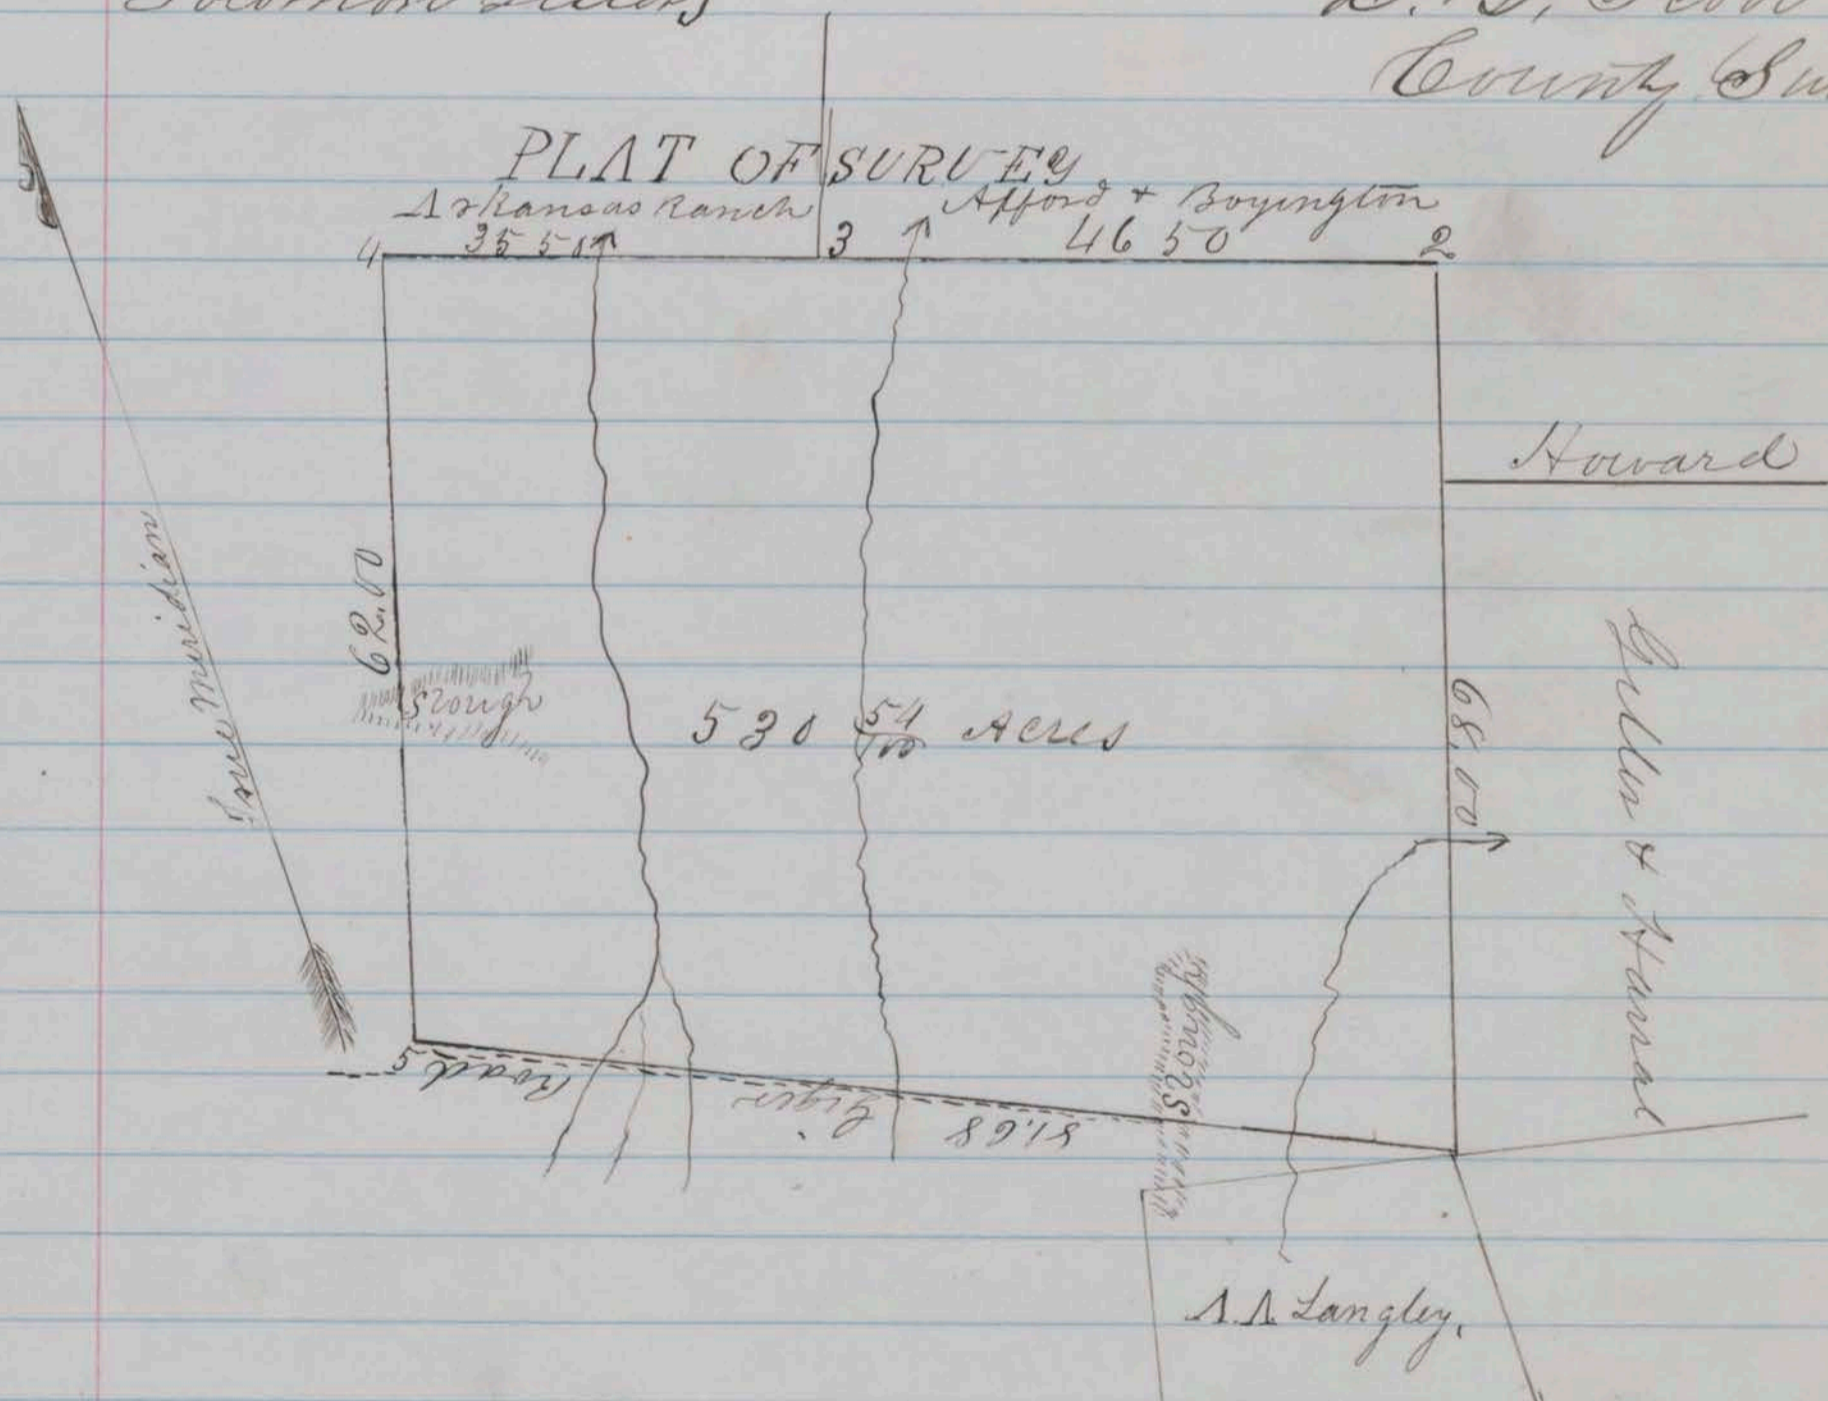 Solomon
County
PLAT OF SURVEY
Arkansas Ranch
Afford & Boyington
4
35 50
3
46 50
2
Howard
True Meridian
62.00
Slough
530 54/100 Acres
68.00
& Hannal
5
Road
Giger
81.68
Slough
A. A. Langley.